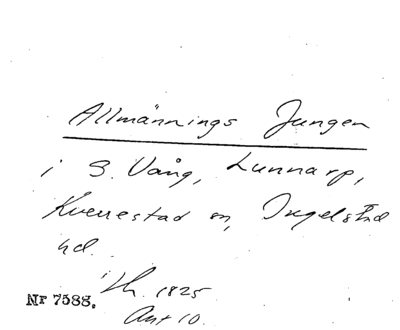 Allmännings Jungen
i S. Vång, Lunnarp,
Kverrestad sn, Ingelstad
hd.
1825
Nr 7588.
Ant 10.